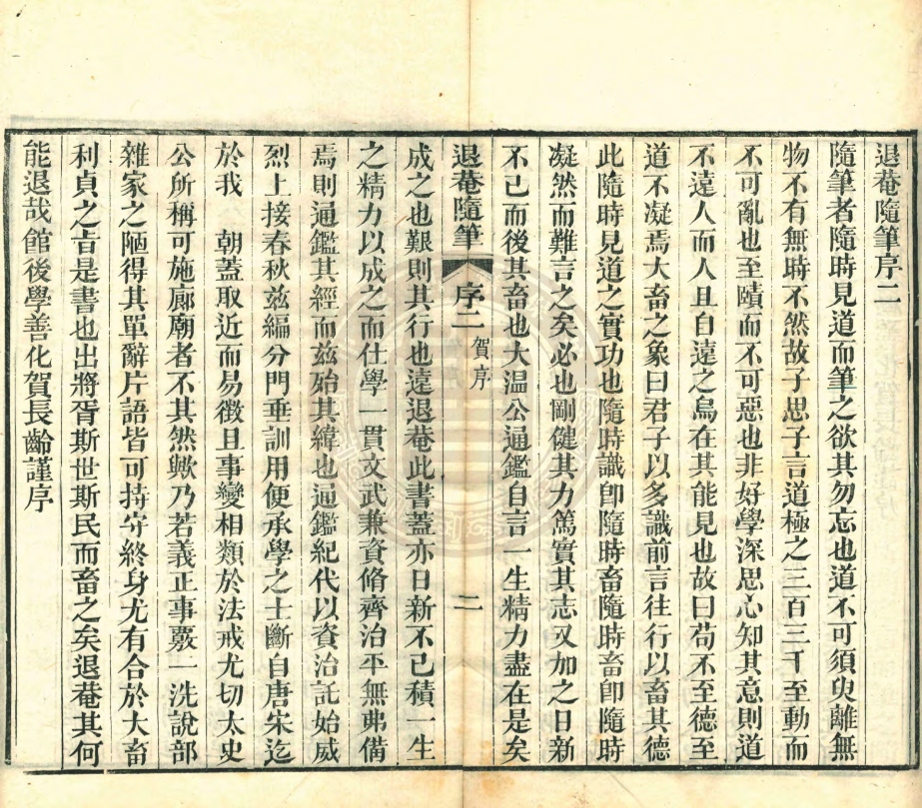 退菴隨筆序二
隨筆者隨時見道而筆之欲其勿忘也道不可須臾離無
物不有無時不然故子思子言道極之三百三千至動而
不可亂也至賾而不可惡也非好學深思心知其意則道
不遠人而人且自遠之烏在其能見也故曰苟不至德至
道不凝焉大畜之象曰君子以多識前言往行以畜其德
此隨時見道之實功也隨時識卽隨時畜隨時畜卽隨時
凝然而難言之矣必也剛健其力篤實其志又加之日新
不已而後其畜也大温公通鑑自言一生精力盡在是矣
退菴隨筆 序二 賀序 二
成之也艱則其行也遠退菴此書蓋亦日新不已積一生
之精力以成之而仕學一貫文武兼資脩齊治平無弗備
焉則通鑑其經而兹殆其緯也通鑑紀代以資治託始威
烈上接春秋兹編分門垂訓用便承學之士斷自唐宋迄
於我 朝蓋取近而易徵且事變相類於法戒尤切太史
公所稱可施廊廟者不其然歟乃若義正事覈一洗說部
雜家之陋得其單辭片語皆可持守終身尤有合於大畜
利貞之旨是書也出將胥斯世斯民而畜之矣退菴其何
能退哉館後學善化賀長齡謹序